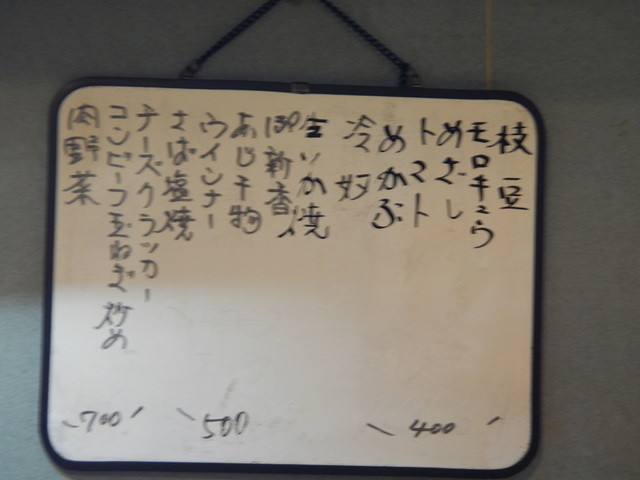 枝豆
モロキュウ
めざし
トマト
めかぶ
冷奴
生いか焼
御新香
あじ干物
ウインナー
さば塩焼
チーズクラッカー
コンビーフ玉ねぎ炒め
肉野菜
400
500
700